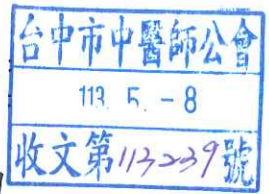 台中市中醫師公會
113. 5. -8
收文第113239號